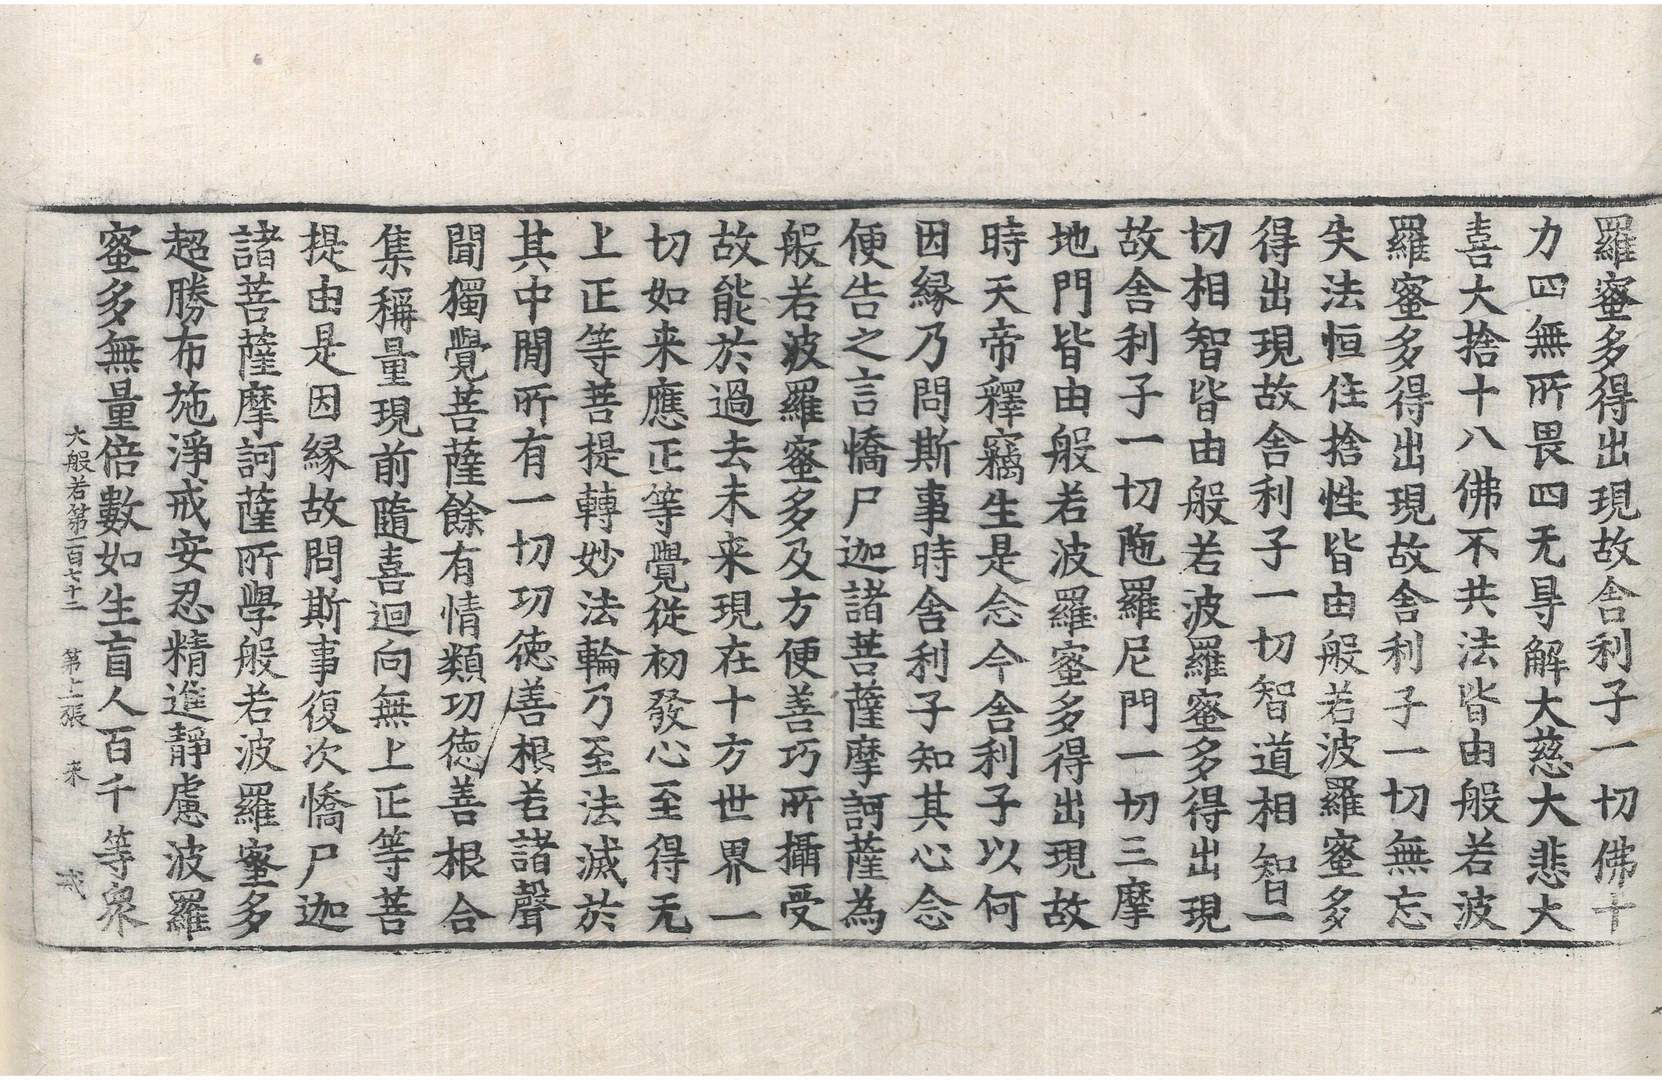 羅蜜多得出現故舍利子一切佛十
力四無所畏四无㝵解大慈大悲大
喜大捨十八佛不共法皆由般若波
羅蜜多得出現故舍利子一切無忘
失法恒住捨性皆由般若波羅蜜多
得出現故舍利子一切智道相智一
切相智皆由般若波羅蜜多得出現
故舍利子一切陁羅尼門一切三摩
地門皆由般若波羅蜜多得出現故
時天帝釋竊生是念今舍利子以何
因縁乃問斯事時舍利子知其心念
便告之言憍尸迦諸菩薩摩訶薩為
般若波羅蜜多及方便善巧所攝受
故能於過去未来現在十方世界一
切如来應正等覺從初發心至得无
上正等菩提轉妙法輪乃至法滅於
其中閒所有一切功徳善根若諸聲
聞獨覺菩薩餘有情類功徳善根合
集稱量現前隨喜迴向無上正等菩
提由是因縁故問斯事復次憍尸迦
諸菩薩摩訶薩所學般若波羅蜜多
超勝布施淨戒安忍精進靜慮波羅
蜜多無量倍數如生盲人百千等衆
大般若第一百七十二 第上張 来 戒